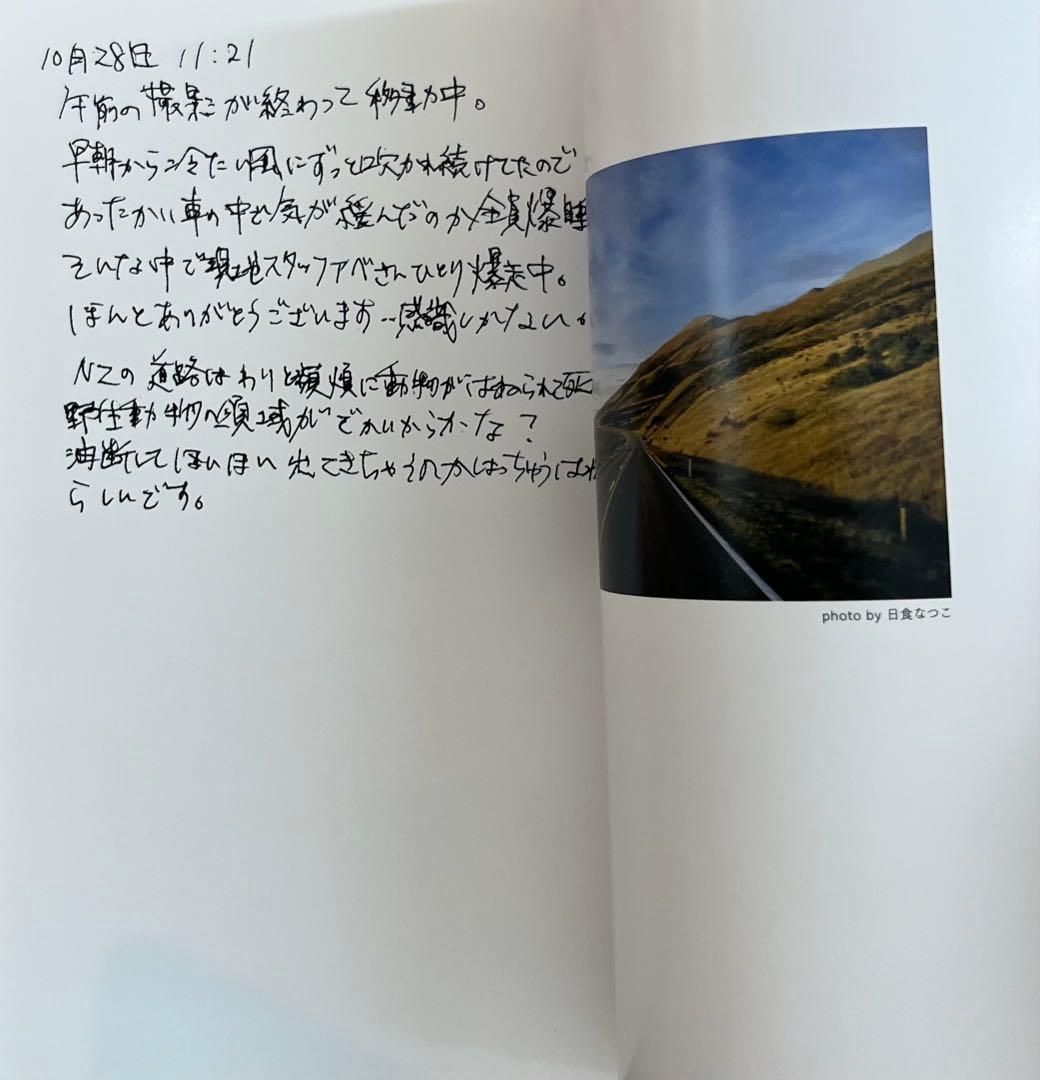 10月28日 11:21
午前の撮影が終わって移動中。
早朝から冷たい風にずっと吹かれ続けてたので
あったかい車の中で気が緩んだのか全員爆睡
そんな中で現地スタッフアベさんひとり爆走中。
ほんとありがとうございます…感謝しかない。
NZの道路はわりと頻繁に動物がはねられて死
野生動物の領域がでかいからかな?
油断してほいほい出てきちゃうのかしょっちゅうはね
らしいです。
photo by 日食なつこ